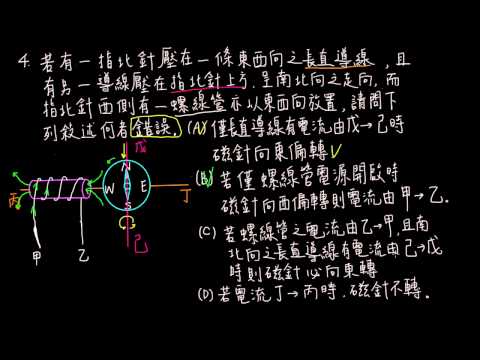 4. 若有一指北針壓在一條東西向之長直導線,且
有另一導線壓在指北針上方.呈南北向之走向,而
指北針西側則有一螺線管亦以東西向放置,請問下
列敘述何者錯誤,(A)僅長直導線有電流由戊→己時
磁針向東偏轉
(B)若僅螺線管電源開啟時
磁針向西偏轉則電流由甲→乙.
(C) 若螺線管之電流由乙→甲,且南
北向之長直導線有電流由己→戊
時則磁針必向東轉
(D)若電流丁→丙時.磁針不轉。
戊
N
丙
W
E
丁
S
己
甲
乙